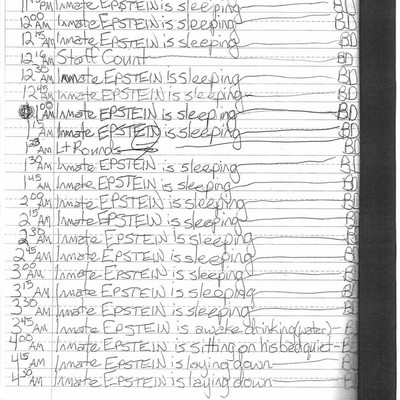 PM Inmate EPSTEIN is sleeping
12:00 AM Inmate EPSTEIN is sleeping BD
12:15 AM Inmate EPSTEIN is sleeping BD
12:16 AM Staff Count BD
12:30 AM Inmate EPSTEIN is sleeping BD
12:45 AM Inmate EPSTEIN is sleeping BD
1:00 AM Inmate EPSTEIN is sleeping BD
AM Inmate EPSTEIN is sleeping BD
AM Lt Rounds BD
1:30 AM Inmate EPSTEIN is sleeping BD
1:45 AM Inmate EPSTEIN is sleeping BD
2:00 AM Inmate EPSTEIN is sleeping BD
2:15 AM Inmate EPSTEIN is sleeping BD
2:30 AM Inmate EPSTEIN is sleeping BD
2:45 AM Inmate EPSTEIN is sleeping BD
3:00 AM Inmate EPSTEIN is sleeping BD
3:15 AM Inmate EPSTEIN is sleeping BD
3:30 AM Inmate EPSTEIN is sleeping BD
3:45 AM Inmate EPSTEIN is awake drinking (water)
4:00 AM Inmate EPSTEIN is sitting on his bed quiet
4:15 AM Inmate EPSTEIN is laying down BD
4:30 AM Inmate EPSTEIN is laying down BD